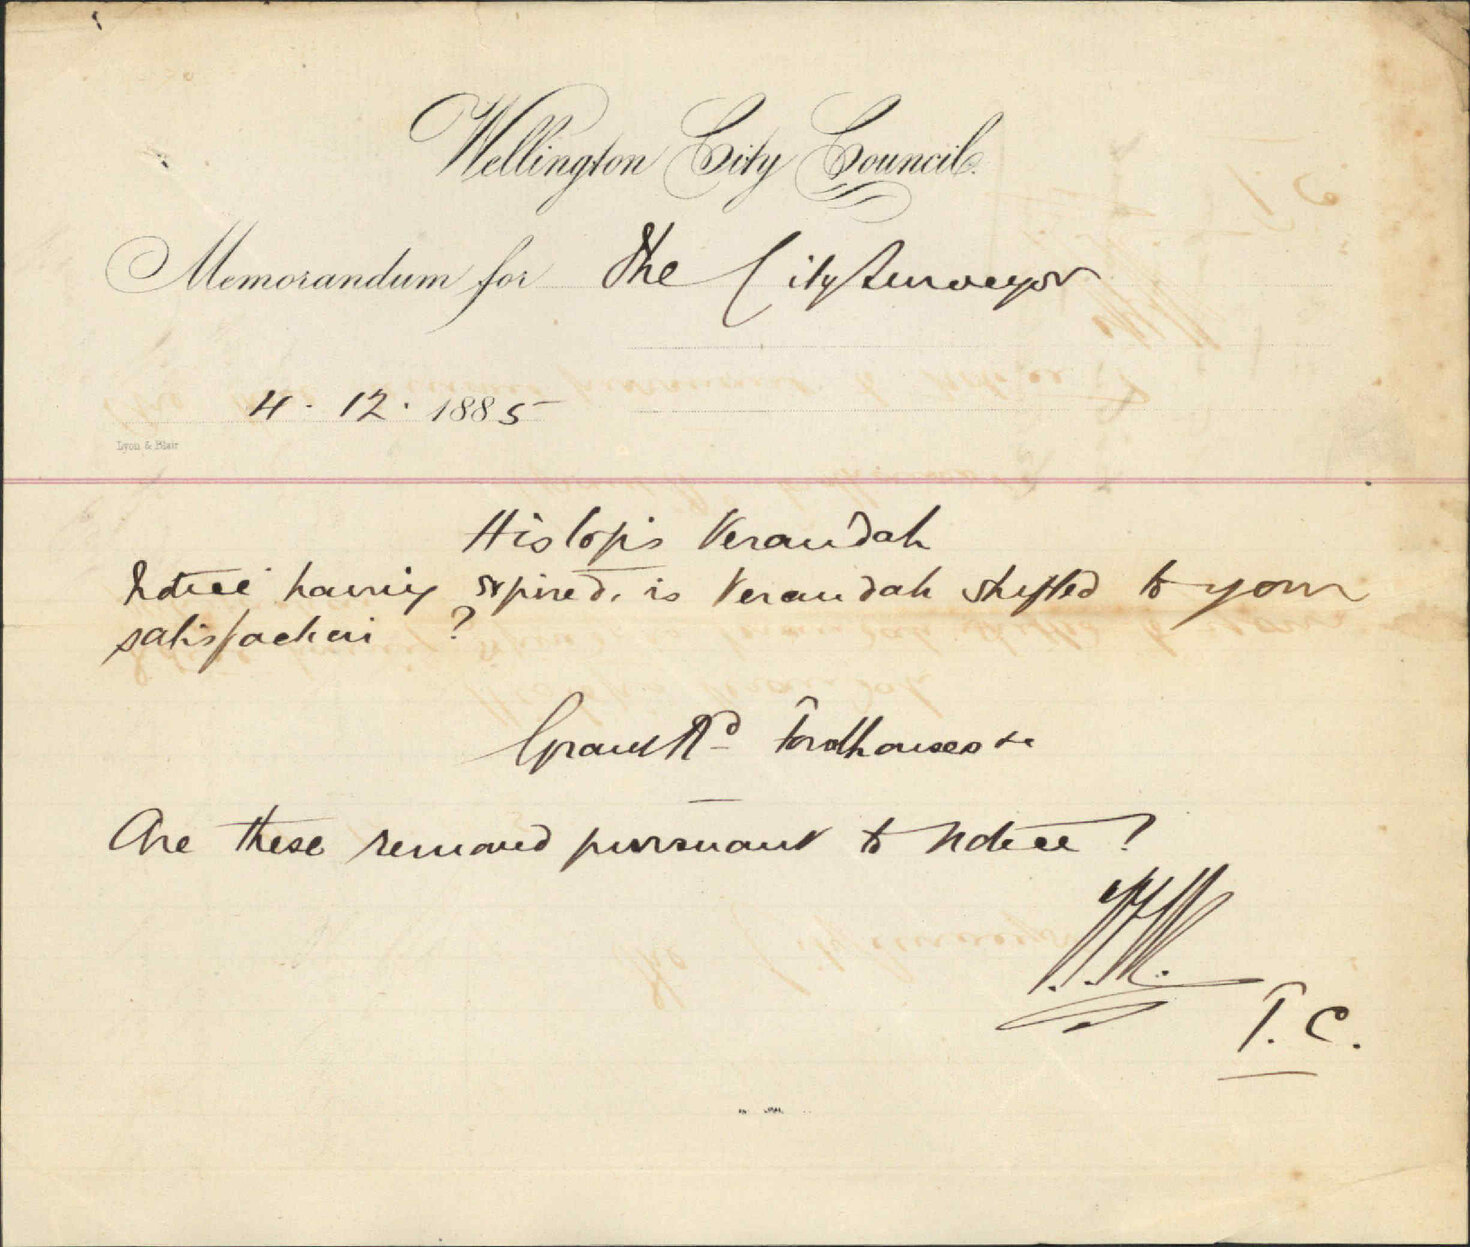 Wellington City Council.
Memorandum for The City Surveyor
4. 12. 1885
Lyon & Blair
Hislop's Verandah
Notice having expired, is Verandah shifted to your
satisfaction ?
Grant Rd Fowlhouses &c
Are these removed pursuant to Notice ?
T.C.